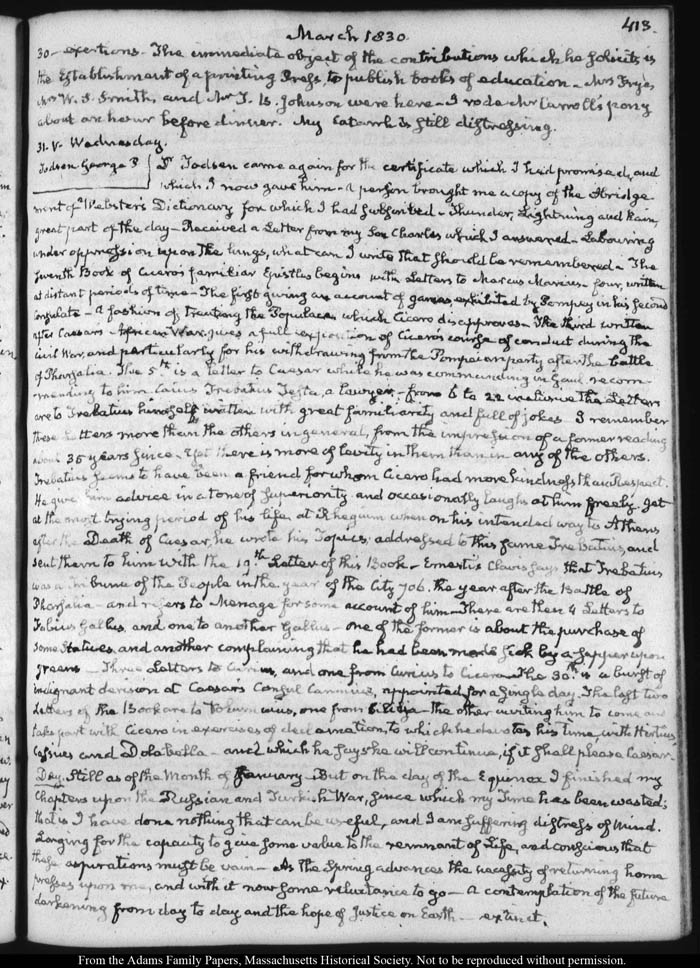 413.
March 1830.
30— exertions. The immediate object of the contributions which he solicits is
the Establishment of a printing Press, to publish books of education— Mrs Frye,
Mrs W. S. Smith, and Mr T. B. Johnson were here— I rode Mr Carroll's pony
about an hour before dinner. My Catarrh is still distressing.
31. V. Wednesday.
Todsen George P
Dr Todsen came again for the certificate which I had promised, and
which I now gave him— A person brought me a copy of the Abridge-
ment of Webster's Dictionary for which I had subscribed— Thunder, Lightning and Rain,
great part of the day— Received a Letter from my Son Charles which I answered— Labouring
under oppression upon the lungs, what can I write that should be remembered— The
seventh Book of Cicero's familiar Epistles begins with Letters to Marcus Marius— four, written
at distant periods of time— The first giving an account of games exhibited by Pompey in his second
Consulate— A fashion of treating the Populace which Cicero disapproves— The third written
after Caesars African War, gives a full exposition of Cicero's course of conduct during the
civil War, and particularly for his withdrawing from the Pompeian party after the battle
of Pharsalia. The 5th is a letter to Caesar while he was commanding in Gaul recom-
mending to him Caius Trebatius Testa, a lawyer. from 6 to 22 inclusive the Letters
are to Trebatius himself written with great familiarity and full of jokes I remember
these Letters more than the others in general, from the impression of a former reading
about 35 years since. Yet there is more of levity in them than in any of the others.
Trebatius seems to have been a friend for whom Cicero had more kindness than Respect.
He gives him advice in a tone of superiority and occasionally laughs at him freely. Yet
at the most trying period of his life, at Rhegium when on his intended way to Athens
after the Death of Caesar, he wrote his Topics, addressed to this same Trebatius, and
sent them to him with the 19th Letter of this Book— Ernesti's Clavis says that Trebatius
was a Tribune of the People in the year of the City 706. the year after the Battle of
Pharsalia— and refers to Menage for some account of him— There are then 4 Letters to
Fabius Gallus, and one to another Gallus— one of the former is about the purchase of
some Statues, and another complaining that he had been made sick by a supper upon
greens— Three Letters to Curius, and one from Curius to Cicero— The 30th is a burst of
indignant derision at Caesars Consul Caninius, appointed for a single day. The last two
Letters of the Book are to Volumnius, one from Cilicia— the other inviting him to come and
take part with Cicero in exercises of declamation, to which he devotes his time with Hirtius,
Cassius and Dolabella— and which he says he will continue, if it shall please Caesar.
Day. Still as of the Month of January— But on the day of the Equinox I finished my
Chapters upon the Russian and Turkish War, since which my Time has been wasted;
that is I have done nothing that can be useful, and I am suffering distress of mind.
Longing for the capacity to give some value to the remnant of Life, and conscious that
these aspirations must be vain— As the Spring advances the necessity of returning home
presses upon me, and with it now some reluctance to go— A contemplation of the future
darkening from day to day and the hope of Justice on Earth— extinct.
From the Adams Family Papers, Massachusetts Historical Society. Not to be reproduced without permission.